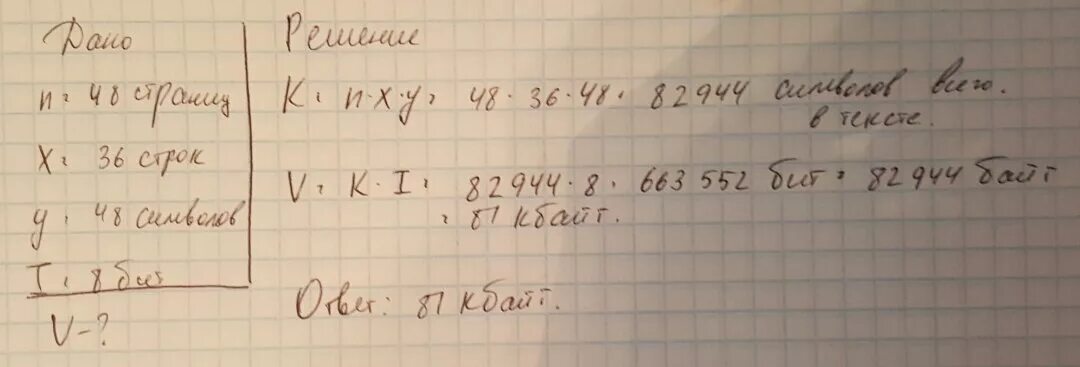 Дано
n = 48 страниц
x = 36 строк
y = 48 символов
I = 8 бит
V - ?
Решение
K = n·x·y = 48·36·48 = 82944 символов всего.
в тексте.
V = K·I = 82944·8 = 663 552 бит = 82944 байт
= 81 кбайт.
Ответ: 81 кбайт.